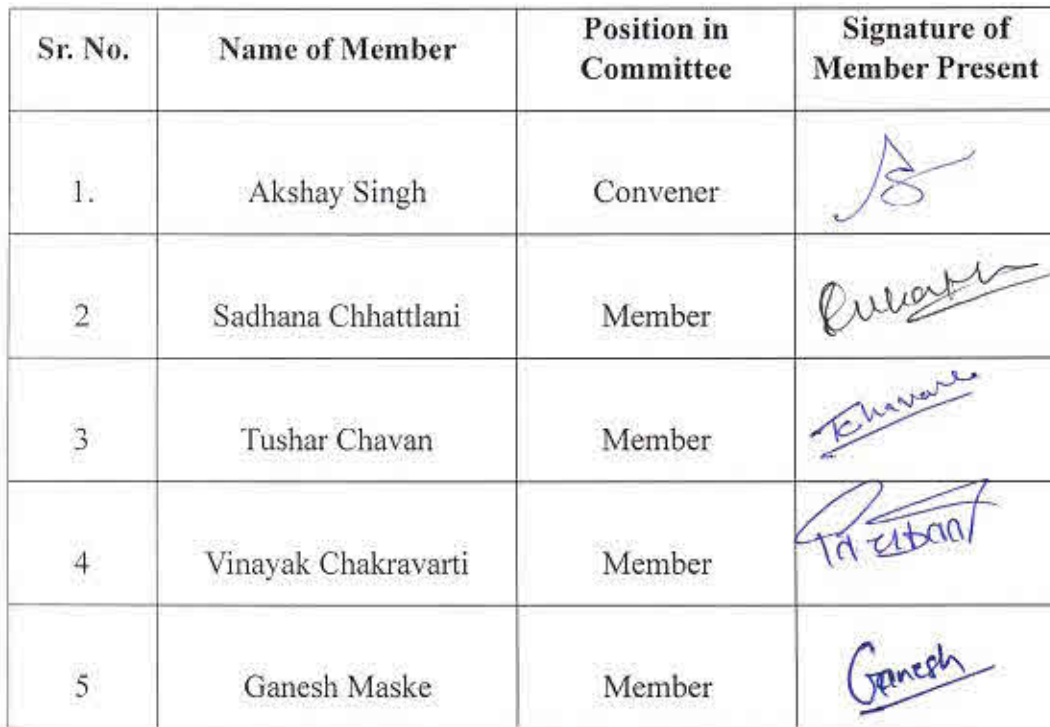 Sr. No. Name of Member Position in Committee Signature of Member Present
1. Akshay Singh Convener
2 Sadhana Chhattlani Member
3 Tushar Chavan Member Tchavan
4 Vinayak Chakravarti Member
5 Ganesh Maske Member Ganesh